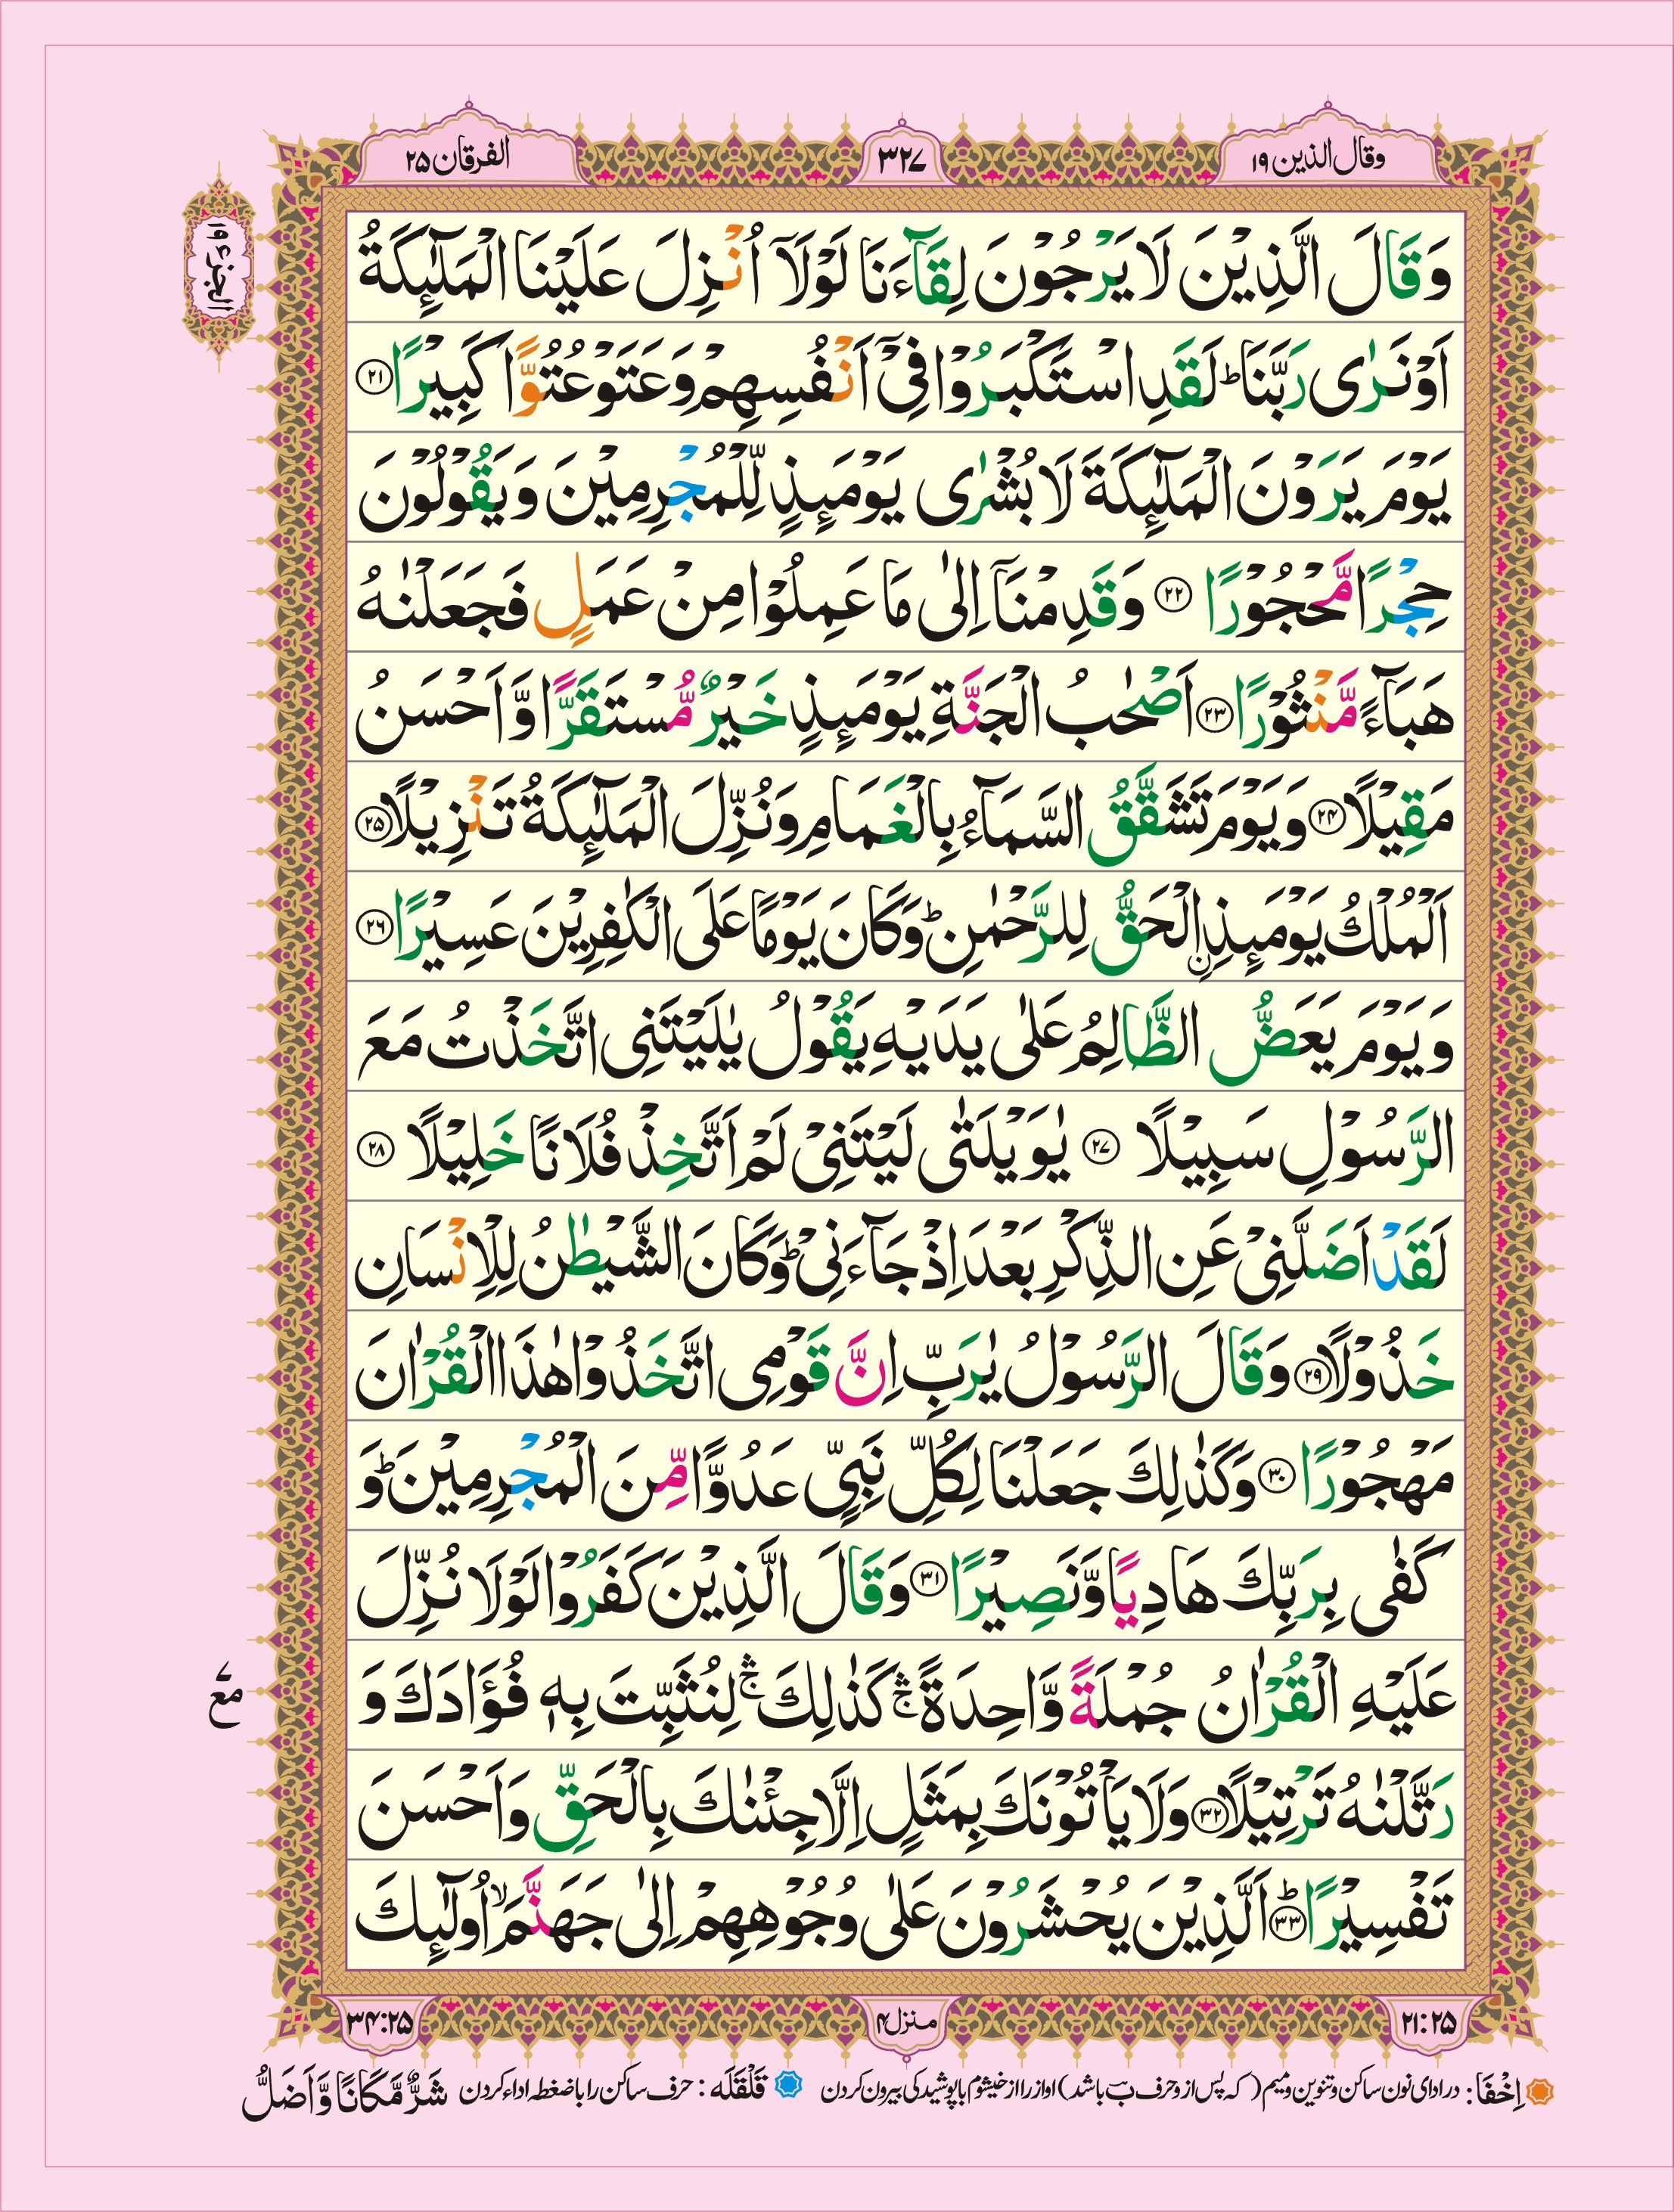 وقال الذين ۱۹
۳۲۷
الفرقان ۲۵
الجزء ۱۹
وَقَالَ الَّذِيْنَ لَا يَرْجُوْنَ لِقَآءَنَا لَوْلَآ اُنْزِلَ عَلَيْنَا الْمَلٰٓئِكَةُ
اَوْ نَرٰى رَبَّنَا ؕ لَقَدِ اسْتَكْبَرُوْا فِىْٓ اَنْفُسِهِمْ وَعَتَوْ عُتُوًّا كَبِيْرًا ﴿۲۱﴾
يَوْمَ يَرَوْنَ الْمَلٰٓئِكَةَ لَا بُشْرٰى يَوْمَئِذٍ لِّلْمُجْرِمِيْنَ وَيَقُوْلُوْنَ
حِجْرًا مَّحْجُوْرًا ﴿۲۲﴾ وَقَدِمْنَآ اِلٰى مَا عَمِلُوْا مِنْ عَمَلٍ فَجَعَلْنٰهُ
هَبَآءً مَّنْثُوْرًا ﴿۲۳﴾ اَصْحٰبُ الْجَنَّةِ يَوْمَئِذٍ خَيْرٌ مُّسْتَقَرًّا وَّاَحْسَنُ
مَقِيْلًا ﴿۲۴﴾ وَيَوْمَ تَشَقَّقُ السَّمَآءُ بِالْغَمَامِ وَنُزِّلَ الْمَلٰٓئِكَةُ تَنْزِيْلًا ﴿۲۵﴾
اَلْمُلْكُ يَوْمَئِذِ ِۨالْحَقُّ لِلرَّحْمٰنِ ؕ وَكَانَ يَوْمًا عَلَى الْكٰفِرِيْنَ عَسِيْرًا ﴿۲۶﴾
وَيَوْمَ يَعَضُّ الظَّالِمُ عَلٰى يَدَيْهِ يَقُوْلُ يٰلَيْتَنِى اتَّخَذْتُ مَعَ
الرَّسُوْلِ سَبِيْلًا ﴿۲۷﴾ يٰوَيْلَتٰى لَيْتَنِىْ لَمْ اَتَّخِذْ فُلَانًا خَلِيْلًا ﴿۲۸﴾
لَقَدْ اَضَلَّنِىْ عَنِ الذِّكْرِ بَعْدَ اِذْ جَآءَنِىْ ؕ وَكَانَ الشَّيْطٰنُ لِلْاِنْسَانِ
خَذُوْلًا ﴿۲۹﴾ وَقَالَ الرَّسُوْلُ يٰرَبِّ اِنَّ قَوْمِى اتَّخَذُوْا هٰذَا الْقُرْاٰنَ
مَهْجُوْرًا ﴿۳۰﴾ وَكَذٰلِكَ جَعَلْنَا لِكُلِّ نَبِىٍّ عَدُوًّا مِّنَ الْمُجْرِمِيْنَ ؕ وَ
كَفٰى بِرَبِّكَ هَادِيًا وَّنَصِيْرًا ﴿۳۱﴾ وَقَالَ الَّذِيْنَ كَفَرُوْا لَوْلَا نُزِّلَ
عَلَيْهِ الْقُرْاٰنُ جُمْلَةً وَّاحِدَةً ۛۚ كَذٰلِكَ ۛۚ لِنُثَبِّتَ بِهٖ فُؤَادَكَ وَ
مع ۷
رَتَّلْنٰهُ تَرْتِيْلًا ﴿۳۲﴾ وَلَا يَاْتُوْنَكَ بِمَثَلٍ اِلَّا جِئْنٰكَ بِالْحَقِّ وَاَحْسَنَ
تَفْسِيْرًا ؕ ﴿۳۳﴾ اَلَّذِيْنَ يُحْشَرُوْنَ عَلٰى وُجُوْهِهِمْ اِلٰى جَهَنَّمَ ۙ اُولٰٓئِكَ
۲۱:۲۵
منزل ۴
۳۴:۲۵
اِخْفَا: در ادای نون ساکن و تنوین و میم (که پس از و حرف ب باشد) اواز را از خیشوم با پوشیدگی بیرون کردن
قَلْقَلَه: حرف ساکن را با ضغطه اداء کردن
شَرٌّ مَّكَانًا وَّاَضَلُّ